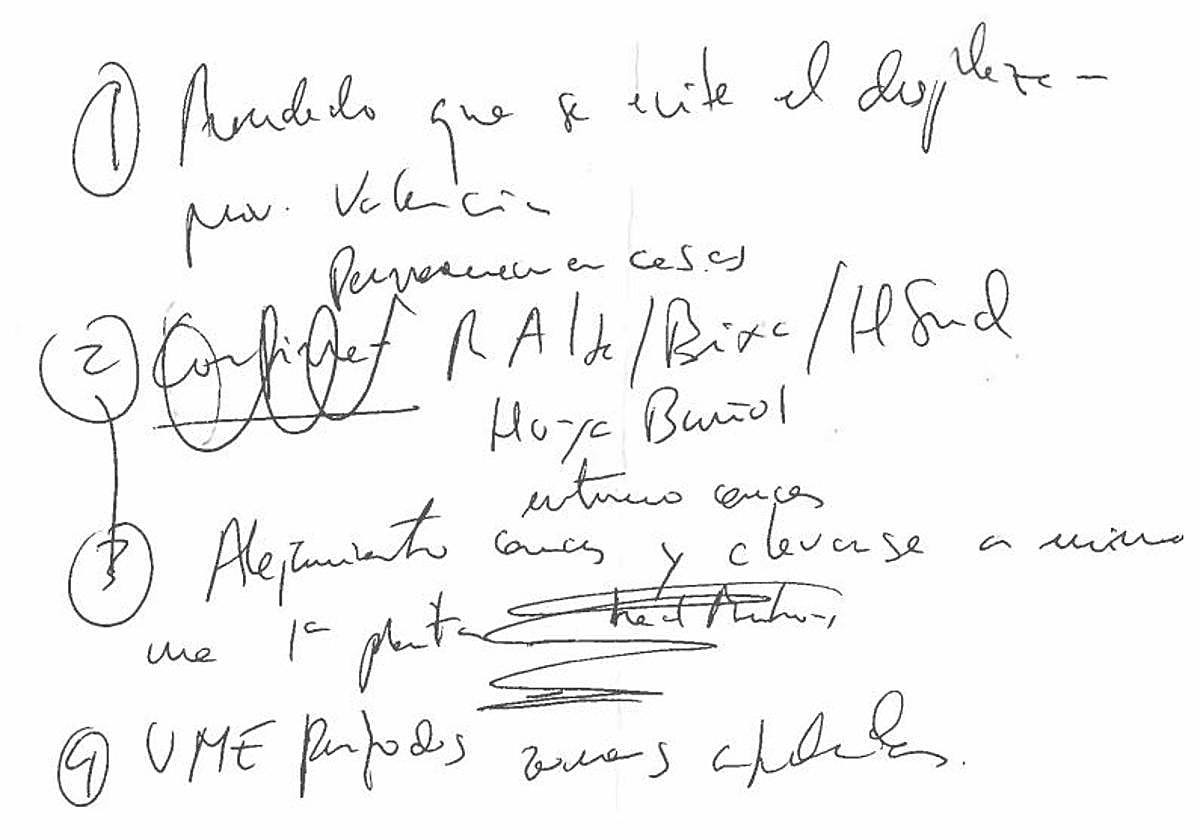 ① que se evite el despleza-
prov. Valencia
Permanecer en casas
② Confinar R Alta/Bixa/H Sud
Hoya Buñol
entorno cauces
③ Alejamiento cauces y elevarse a mismo
una 1ª planta
④ UME por todas zonas afectadas.